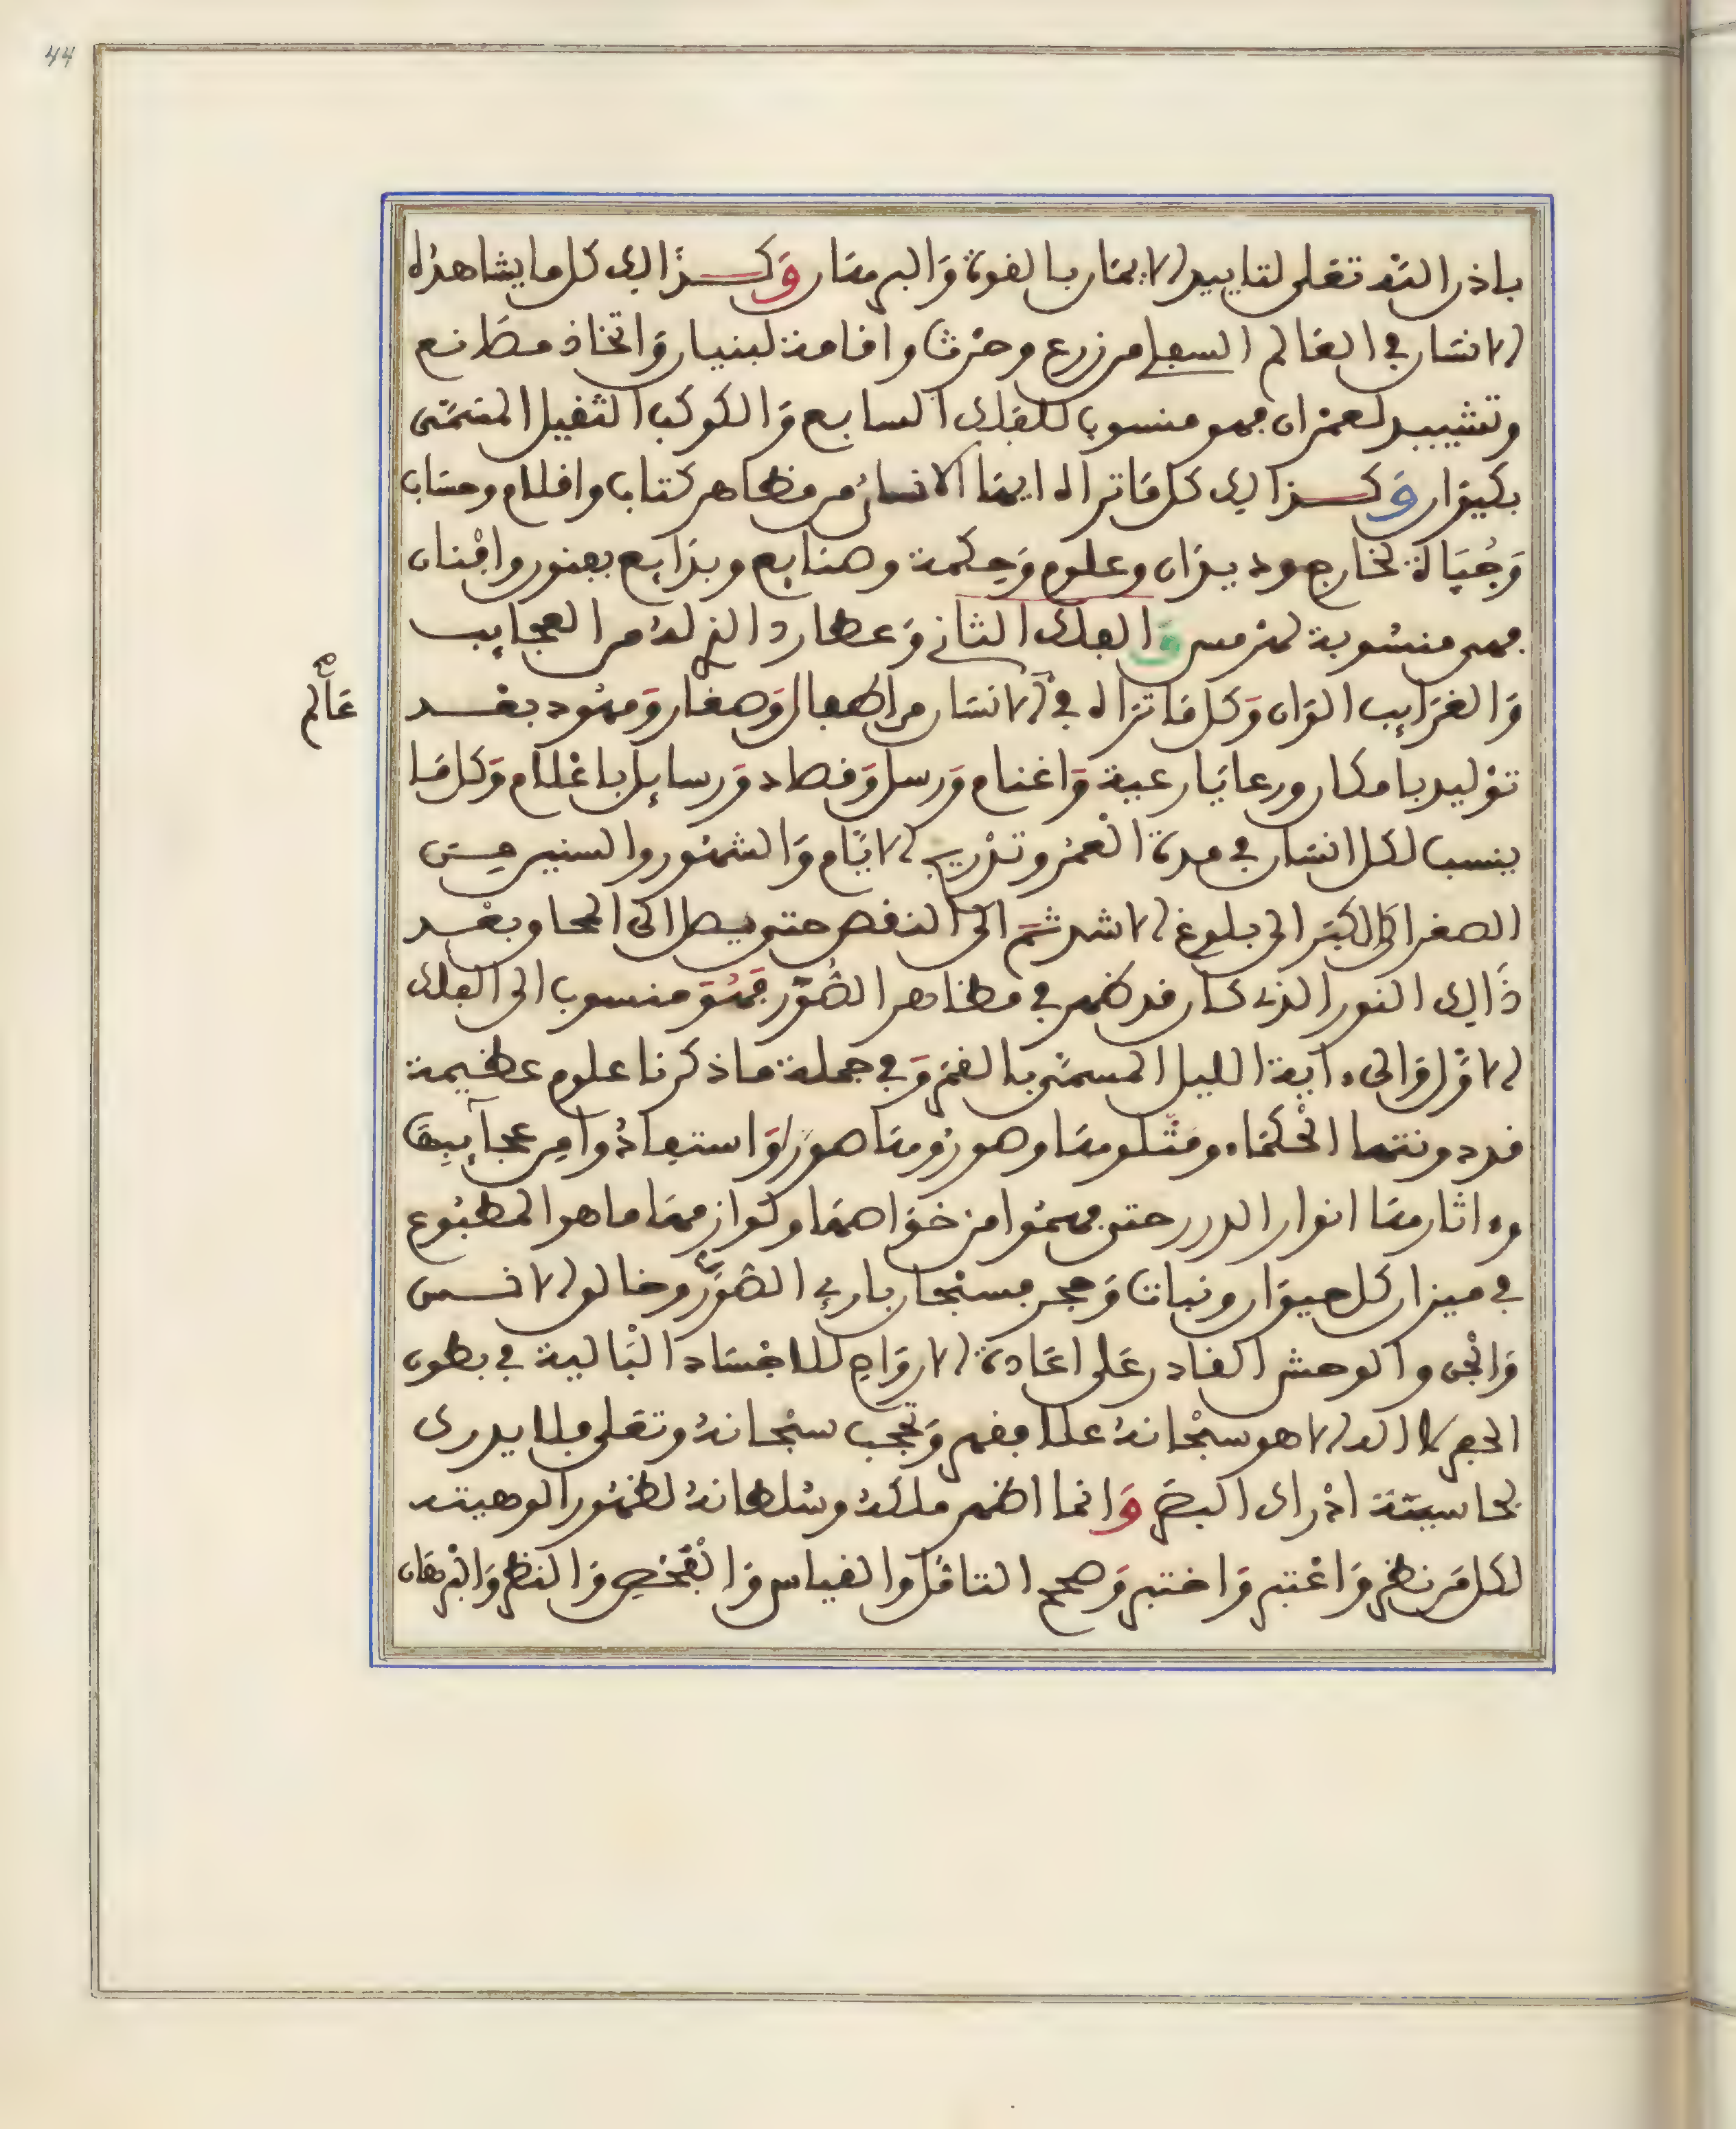 44
باذن الله تعلى لتاييد الايمان بالقوة والبرهان وكذالك كل ما يشاهده
الانسان في العالم السفلي من زرع وحرث واقامة لبنيان واتخاذ مصانع
وتشييد لعمران فهو منسوب للفلك السابع والكوكب الثقيل المسمى
بكيوان وكذالك كل ما تراه ايها الانسان من مظاهر كتاب واقلام وحساب
وجباة لخارج وديوان وعلوم وحكمة وصنايع وبدايع بفنون وافنان
فهي منسوبة لهرمس والفلك الثاني وعطارد الذي له من العجايب
والغرايب الوان وكل ما تراه في الانسان من اطفال وصغار ومهود بعد
عالم صح
توليد بامكان ورعايا رعية واغنام ورسل وقصاد ورسايل باعلام وكل ما
ينسب لكل انسان في مدة العمر وتدريج الايام والشهور والسنين من
الصغر الى الكبر الى بلوغ الاشد ثم الى النقص حتى يصل الى المحاو بعد
ذالك النور الذي كان قد ظهر في مظاهر الصور فهو منسوب الى الفلك
الاول والى ءاية الليل المسمى بالقمر وفي جملة ما ذكرنا علوم عظيمة
قد دونتها الحكماء ومثلوها وصوروها صورا واستفادوا من عجآيبها
وءاثارها انوار الدرر حتى فهموا من خواصها ولوازمها ما هو المطبوع
في ميزان كل حيوان ونبات وحجر فسبحان بارئ الصور وخالق الانس
والجن والوحش القادر على اعادة الارواح للاجساد البالية في بطون
الحفر لا اله الا هو سبحانه علا فقهر وحجب سبحانه وتعلى فلا يدرى
بحاسة ادراك البصر وانما اظهر ملكه وسلطانه لظهور الوهيته
لكل من نظر واعتبر واختبر وصحح التامل والقياس والفحص والنظر والبرهان